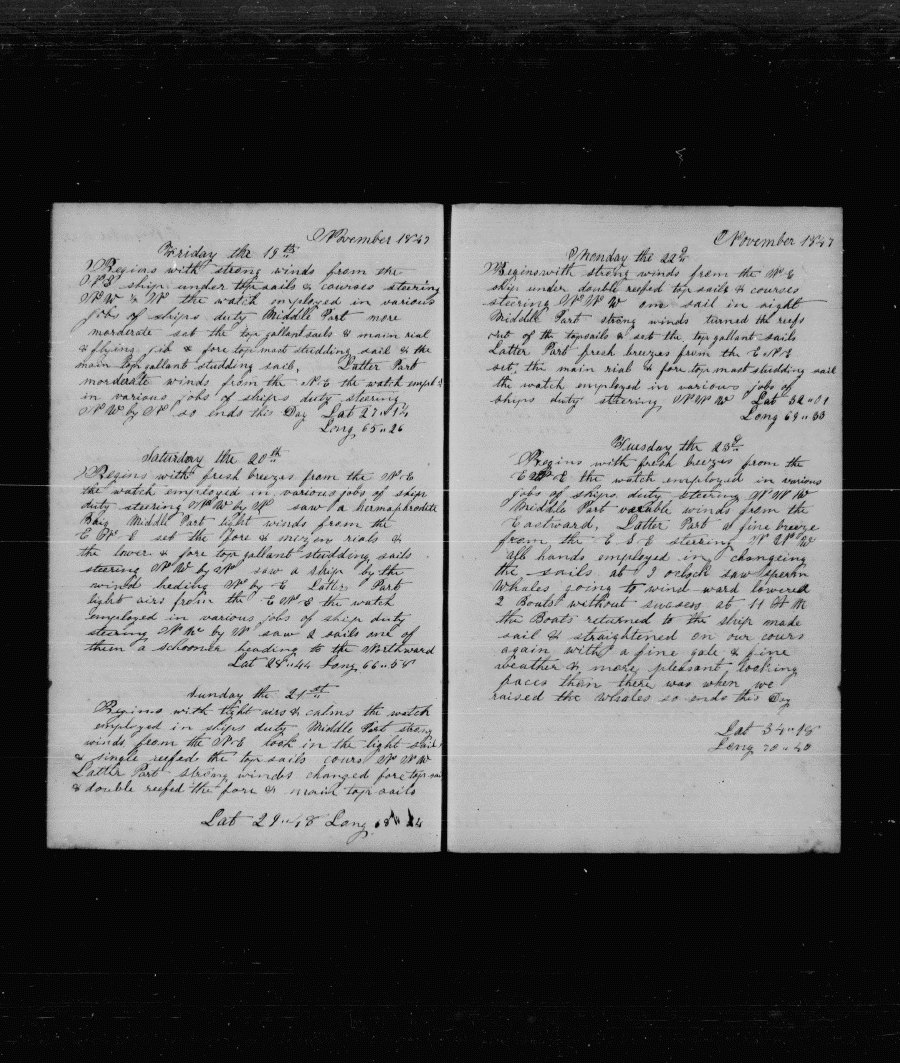 November 1847
Friday the 19th
Begins with strong winds from the
N.E ship under top sails & courses steering
N W & N the watch employed in various
jobs of ships duty Middle Part more
morderate set the top gallant sails & main rial
& flying jib & fore top mast studding sail & the
main top gallant studding sail, Latter Part
morderate winds from the N.E the watch empl
in various jobs of ships duty steering
N W by N so ends this Day Lat 27"14
Long 65"26
Saturday the 20th
Begins with fresh breezes from the N E
the watch employed in various jobs of ship
duty steering N W by N saw a hermaphrodite
Brig Middle Part light winds from the
E N E set the Fore & mizen rials &
the lower & fore top gallant studding sails
steering N W by N saw a ship by the
wind heding N by E Latter Part
light airs from the E N E the watch
employed in various jobs of ship duty
steering N W by N saw 2 sails one of
them a schooner heading to the Northward
Lat 28"44 Long 66"58
Sunday the 21st
Begins with light airs & calms the watch
employed in ships duty Middle Part strong
winds from the N E took in the light sails
& single reefed the top sails cours N N W
Latter Part strong winds changed fore top sail
& double reefed the fore & main top sails
Lat 29"48 Long 68"
November 1847
Monday the 22d
Begins with strong winds from the N E
ship under double reefed top sails & courses
steering N N W one sail in sight
Middle Part strong winds turned the reefs
out of the topsails & set the top gallant sails
Latter Part fresh breezes from the E N E
set, the main rial & fore top mast studding sail
the watch employed in various jobs of
ships duty steering N N W Lat 32"01
Long 69"33
Tuesday the 23d
Begins with fresh breezes from the
E N E the watch employed in various
jobs of ships duty Steering N N W
Middle Part varable winds from the
Eastward, Latter Part a fine breeze
from the E S E steering N N W
all hands employed in changeing
the sails at 9 oclock saw sperm
Whales going to wind ward lowered
2 Boats without sucsess at 11 A M
the Boats returned to the ship made
sail & straightened on our cours
again with a fine gale & fine
weather & more pleasant looking
faces than there was when we
raised the whales so ends this Day
Lat 34"18
Long 70"40